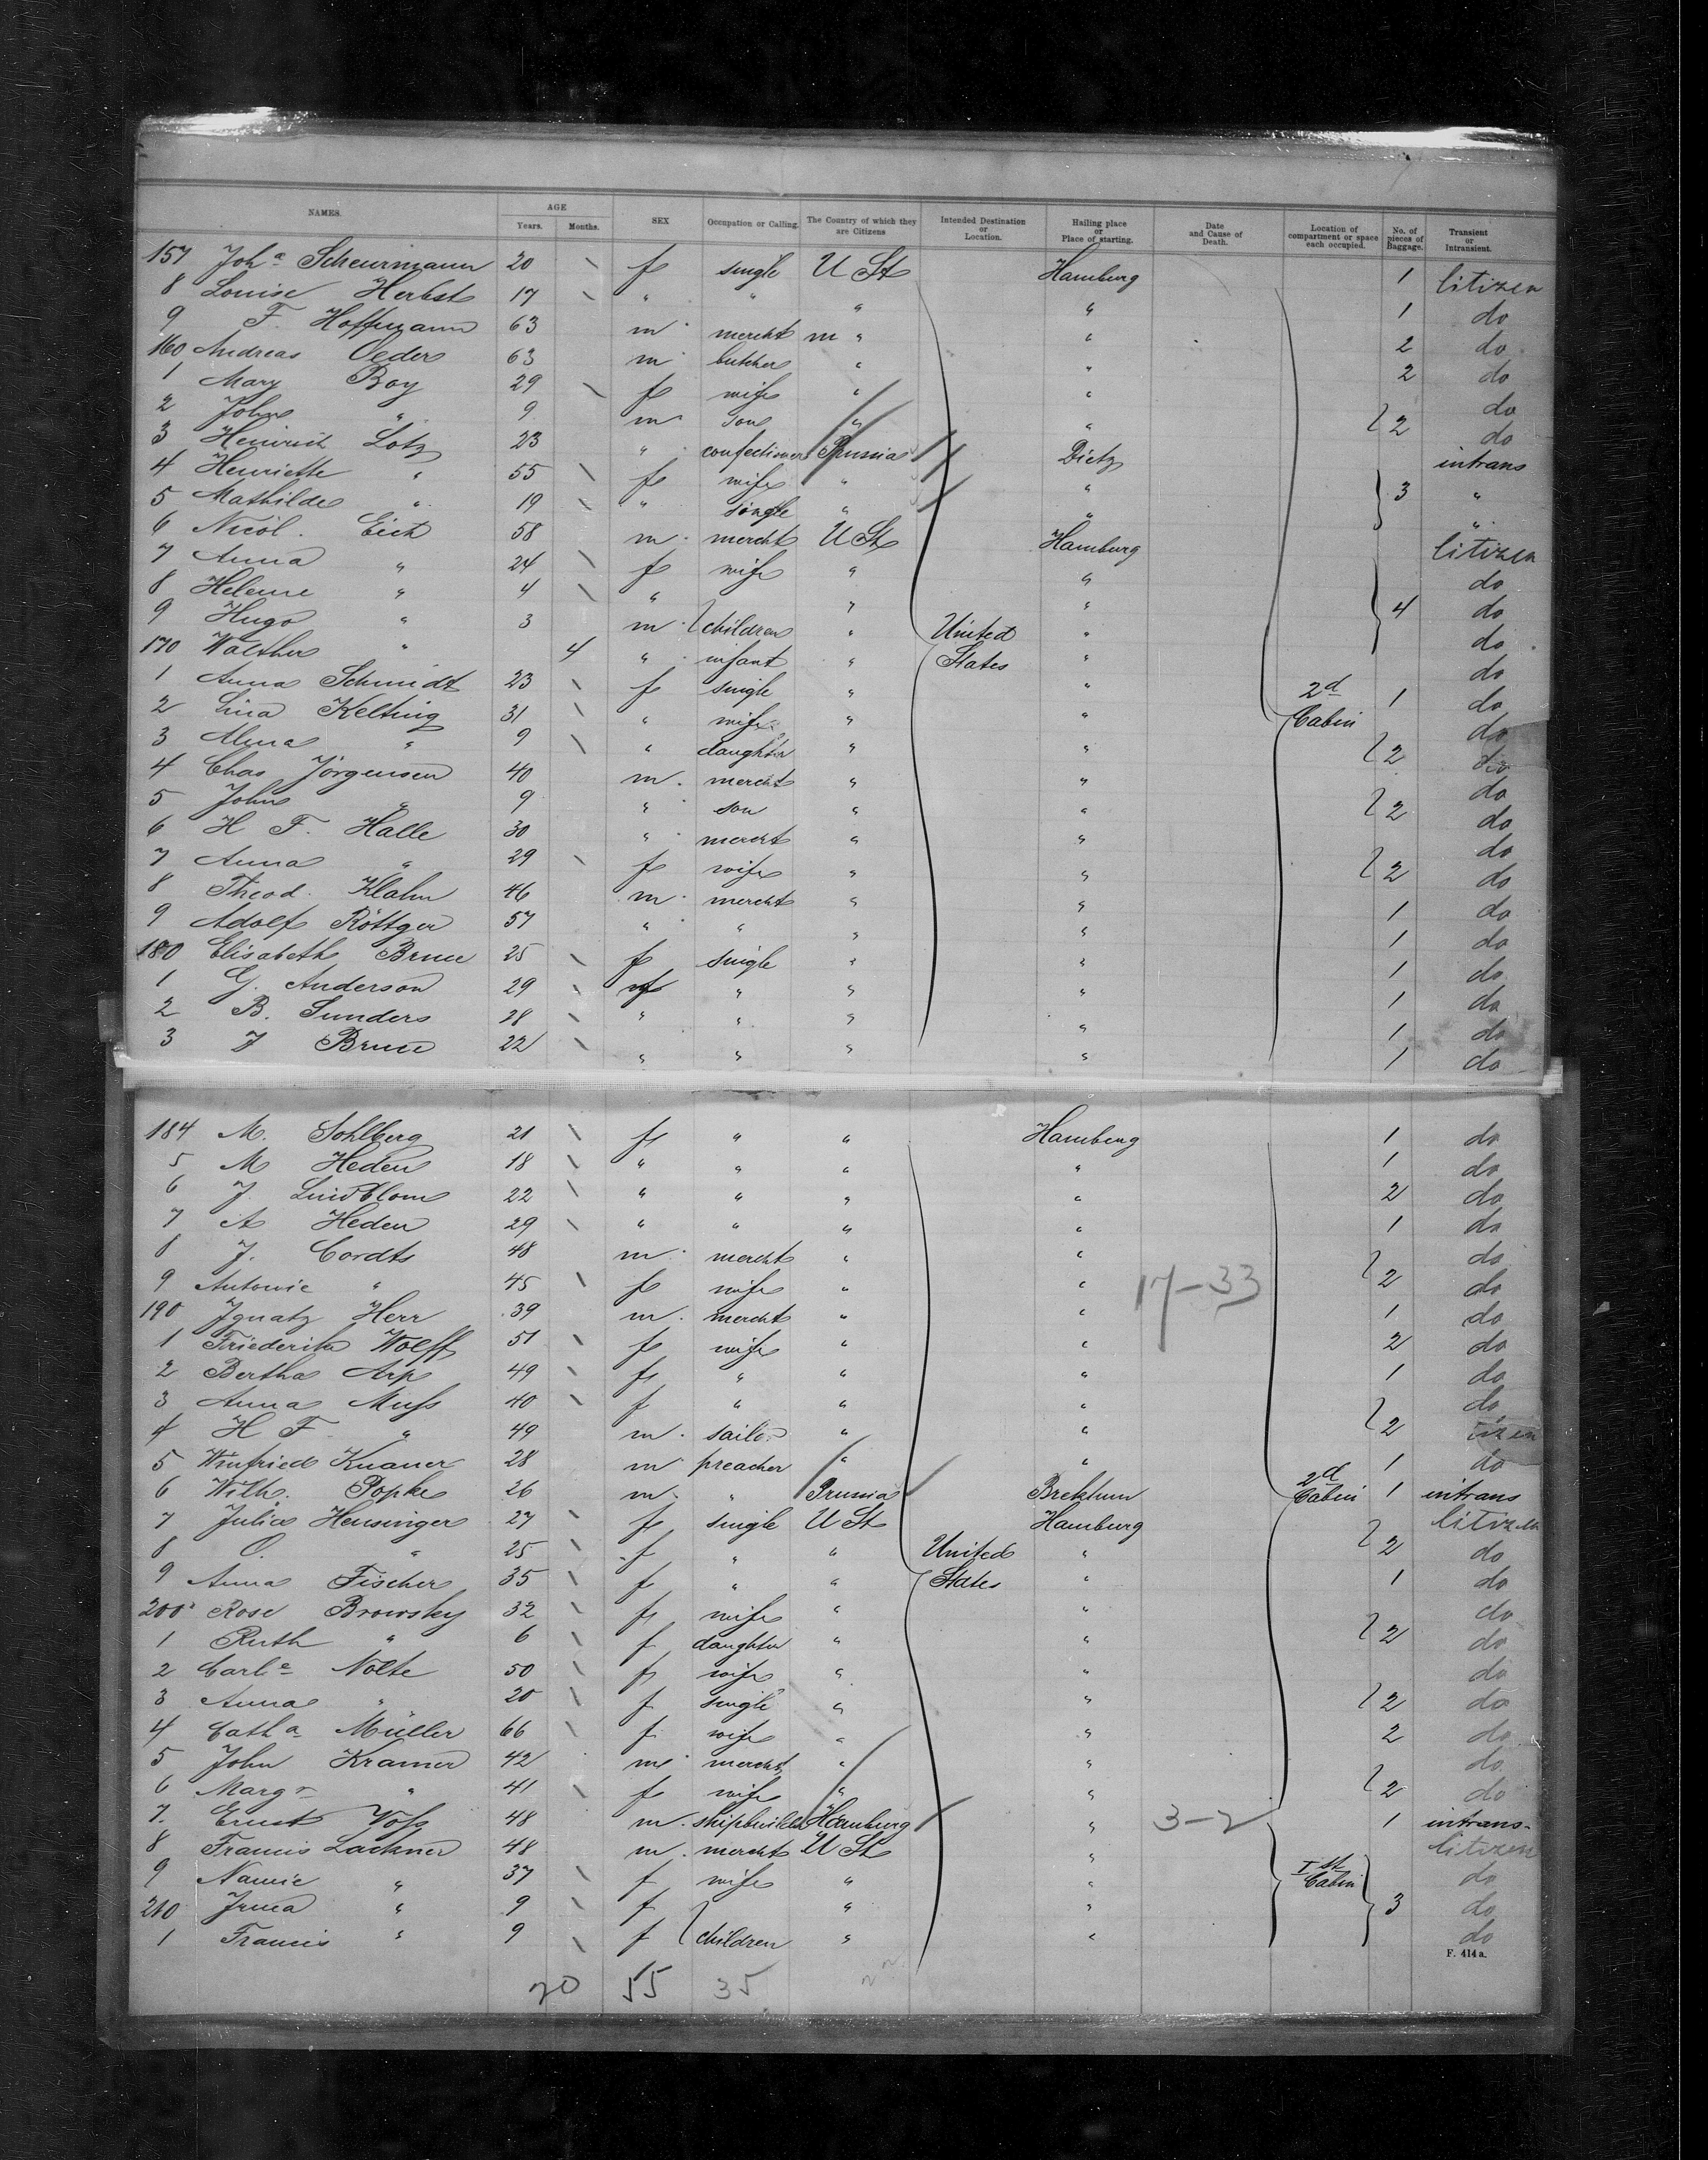 NAMES. AGE Years. Months. SEX Occupation or Calling. The Country of which they are Citizens Intended Destination or Location. Hailing place or Place of starting. Date and Cause of Death. Location of compartment or space each occupied. No. of pieces of Baggage. Transient or Intransient.
157 Joh a Scheurmann 20 \ f single U St Hamburg 1 Citizen
8 Louise Herbst 17 \ " " " " 1 do
9 F. Hoffmann 63 m mercht m " " 2 do
160 Andreas Oeder 63 m butcher " " 2 do
1 Mary Boy 29 \ f wife " " do
2 John " 9 m son " " 2 do
3 Heinrich Lotz 23 " confectioner Prussia Dietz intrans
4 Henriette " 55 \ f wife " " 3 "
5 Mathilde " 19 \ " single " " "
6 Nicol. Eich 58 m mercht U St Hamburg Citizen
7 Anna " 24 \ f wife " " do
8 Helene " 4 \ " " " 4 do
9 Hugo " 3 m children " United " do
170 Walther " 4 " infant " States " do
1 Anna Schmidt 23 \ f single " " 2d 1 do
2 Lina Kelting 31 \ " wife " " Cabin do
3 Alma " 9 \ " daughter " " 2 do
4 Chas Jörgensen 40 m. mercht " " do
5 John " 9 " son " " 2 do
6 H F. Halle 30 " mercht " " do
7 Anna " 29 \ f wife " " 2 do
8 Theod. Klahn 46 m mercht " " 1 do
9 Adolf Röttger 57 " " " " 1 do
180 Elisabeth Bruce 25 \ f single " " 1 do
1 G. Anderson 29 \ f " " " 1 do
2 B. Sunders 28 \ " " " " 1 do
3 J Bruce 22 \ " " " " 1 do
184 M. Sohlberg 21 \ f " " Hamburg 1 do
5 M Heden 18 \ " " " " 1 do
6 J. Lindblom 22 \ " " " " 2 do
7 A Heden 29 \ " " " " 1 do
8 J. Cordts 48 m mercht " " do
9 Antonie " 45 \ f wife " " 17-33 2 do
190 Ignatz Herr 39 m. mercht " " 1 do
1 Friederike Wolff 51 \ f wife " " 2 do
2 Bertha Arp 49 \ f " " " 1 do
3 Anna Muss 40 \ f " " " do
4 H F. " 49 m. sailor " " 2
5 Winfried Knauer 28 m preacher " " 1 do
6 Wilh. Popke 26 m. " Prussia Breklum 2d Cabin 1 intrans
7 Julia Hensinger 27 \ f single U St Hamburg Citizen
8 O. " 25 \ f " " United " 2 do
9 Anna Fischer 35 \ f " " States " 1 do
200 Rose Browsky 32 \ f wife " " do
1 Ruth " 6 \ f daughter " " 2 do
2 Carl e Nolte 50 \ f wife " " do
3 Anna " 20 \ f single " " 2 do
4 Cath a Müller 66 \ f wife " " 2 do
5 John Kramer 42 m mercht " " do
6 Marg r " 41 \ f wife " " 2 do
7. Ernst Voss 48 m. shipbuilder Hamburg " 3-2 1 intrans.
8 Francis Lackner 48 m. mercht U St " Citizen
9 Namie " 37 \ f wife " " Ist Cabin do
210 Irma " 9 \ f " " 3 do
1 Francis " 9 \ f children " " do
F. 414a.
20 55 35